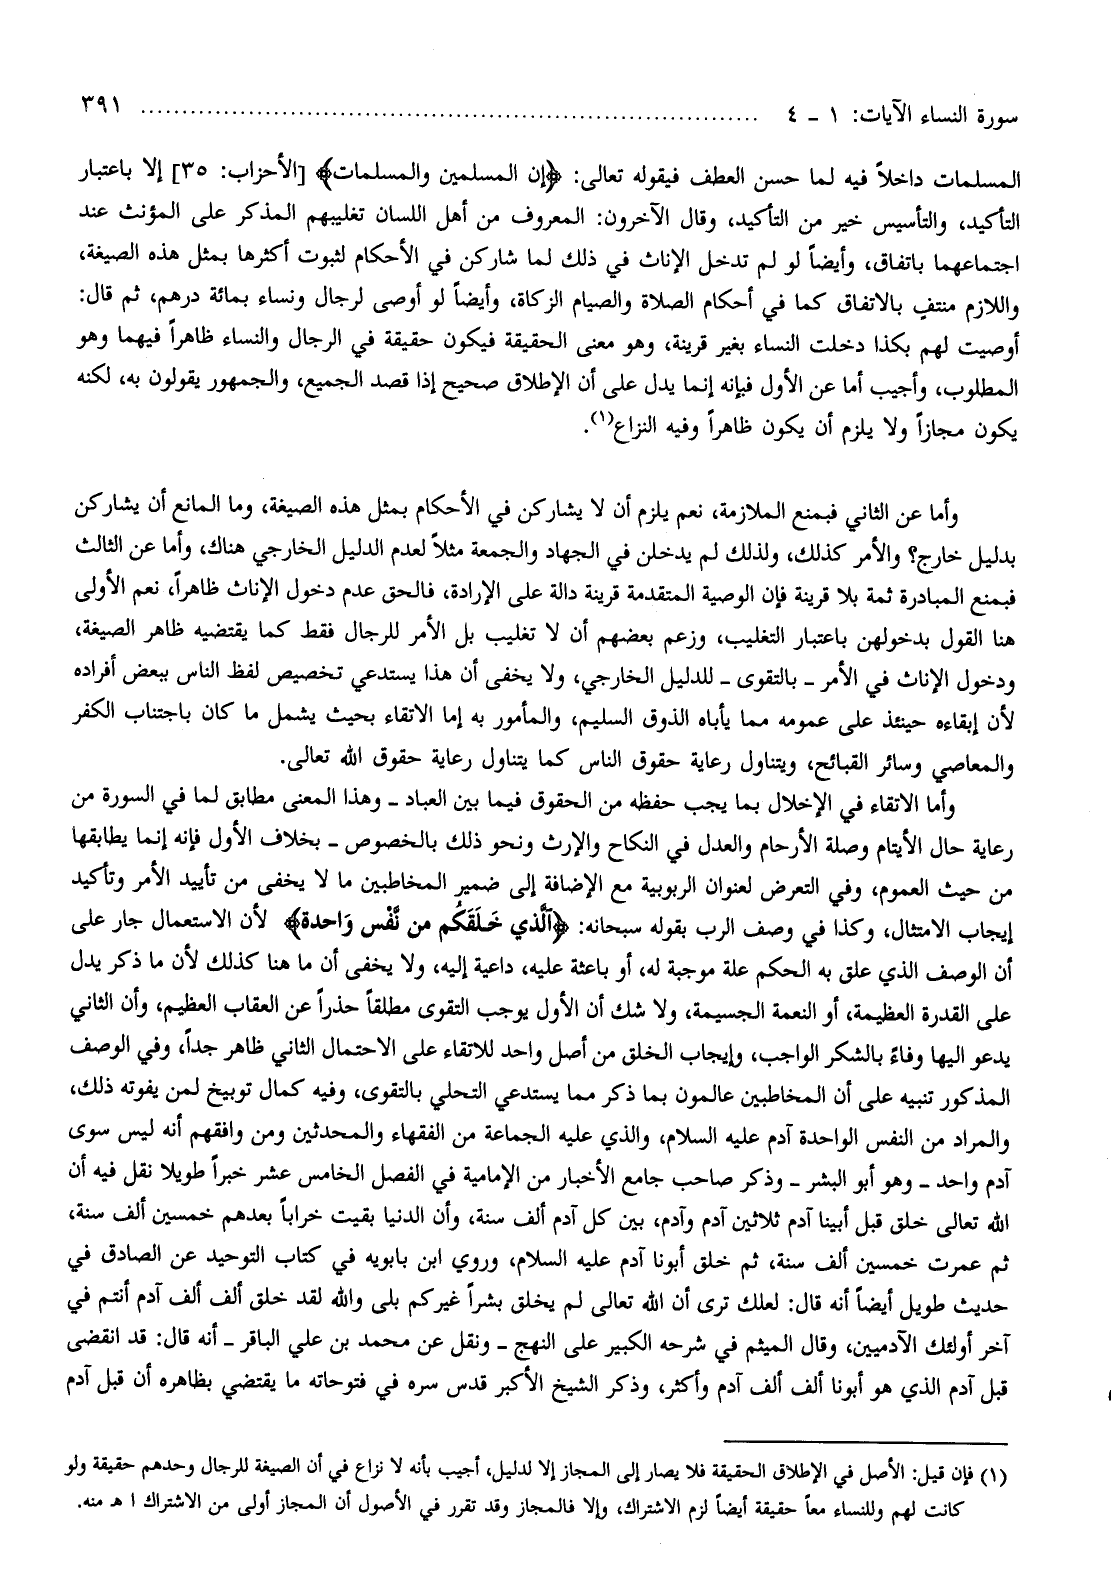 سورة النساء الآيات: ١ ـ ٤ .......................................................................... ٣٩١
المسلمات داخلاً فيه لما حسن العطف فيقوله تعالى: ﴿إن المسلمين والمسلمات﴾ [الأحزاب: ٣٥] إلا باعتبار
التأكيد، والتأسيس خير من التأكيد، وقال الآخرون: المعروف من أهل اللسان تغليبهم المذكر على المؤنث عند
اجتماعهما باتفاق، وأيضاً لو لم تدخل الإناث في ذلك لما شاركن في الأحكام لثبوت أكثرها بمثل هذه الصيغة،
واللازم منتفٍ بالاتفاق كما في أحكام الصلاة والصيام الزكاة، وأيضاً لو أوصى لرجال ونساء بمائة درهم، ثم قال:
أوصيت لهم بكذا دخلت النساء بغير قرينة، وهو معنى الحقيقة فيكون حقيقة في الرجال والنساء ظاهراً فيهما وهو
المطلوب، وأجيب أما عن الأول فبإنه إنما يدل على أن الإطلاق صحيح إذا قصد الجميع، والجمهور يقولون به، لكنه
يكون مجازاً ولا يلزم أن يكون ظاهراً وفيه النزاع(١).
وأما عن الثاني فبمنع الملازمة، نعم يلزم أن لا يشاركن في الأحكام بمثل هذه الصيغة، وما المانع أن يشاركن
بدليل خارج؟ والأمر كذلك، ولذلك لم يدخلن في الجهاد والجمعة مثلاً لعدم الدليل الخارجي هناك، وأما عن الثالث
فبمنع المبادرة ثمة بلا قرينة فإن الوصية المتقدمة قرينة دالة على الإرادة، فالحق عدم دخول الإناث ظاهراً، نعم الأولى
هنا القول بدخولهن باعتبار التغليب، وزعم بعضهم أن لا تغليب بل الأمر للرجال فقط كما يقتضيه ظاهر الصيغة،
ودخول الإناث في الأمر ـ بالتقوى ـ للدليل الخارجي، ولا يخفى أن هذا يستدعي تخصيص لفظ الناس ببعض أفراده
لأن إبقاءه حينئذ على عمومه مما يأباه الذوق السليم، والمأمور به إما الاتقاء بحيث يشمل ما كان باجتناب الكفر
والمعاصي وسائر القبائح، ويتناول رعاية حقوق الناس كما يتناول رعاية حقوق الله تعالى.
وأما الاتقاء في الإخلال بما يجب حفظه من الحقوق فيما بين العباد ـ وهذا المعنى مطابق لما في السورة من
رعاية حال الأيتام وصلة الأرحام والعدل في النكاح والإرث ونحو ذلك بالخصوص ـ بخلاف الأول فإنه إنما يطابقها
من حيث العموم، وفي التعرض لعنوان الربوبية مع الإضافة إلى ضمير المخاطبين ما لا يخفى من تأييد الأمر وتأكيد
إيجاب الامتثال، وكذا في وصف الرب بقوله سبحانه: ﴿ٱلَّذي خَلَقَكُم من نَّفْس وَاحدة﴾ لأن الاستعمال جار على
أن الوصف الذي علق به الحكم علة موجبة له، أو باعثة عليه، داعية إليه، ولا يخفى أن ما هنا كذلك لأن ما ذكر يدل
على القدرة العظيمة، أو النعمة الجسيمة، ولا شك أن الأول يوجب التقوى مطلقاً حذراً عن العقاب العظيم، وأن الثاني
يدعو اليها وفاءً بالشكر الواجب، وإيجاب الخلق من أصل واحد للاتقاء على الاحتمال الثاني ظاهر جداً، وفي الوصف
المذكور تنبيه على أن المخاطبين عالمون بما ذكر مما يستدعي التحلي بالتقوى، وفيه كمال توبيخ لمن يفوته ذلك،
والمراد من النفس الواحدة آدم عليه السلام، والذي عليه الجماعة من الفقهاء والمحدثين ومن وافقهم أنه ليس سوى
آدم واحد ـ وهو أبو البشر ـ وذكر صاحب جامع الأخبار من الإمامية في الفصل الخامس عشر خبراً طويلا نقل فيه أن
الله تعالى خلق قبل أبينا آدم ثلاثين آدم وآدم، بين كل آدم ألف سنة، وأن الدنيا بقيت خراباً بعدهم خمسين ألف سنة،
ثم عمرت خمسين ألف سنة، ثم خلق أبونا آدم عليه السلام، وروي ابن بابويه في كتاب التوحيد عن الصادق في
حديث طويل أيضاً أنه قال: لعلك ترى أن الله تعالى لم يخلق بشراً غيركم بلى والله لقد خلق ألف ألف آدم أنتم في
آخر أولئك الآدميين، وقال الميثم في شرحه الكبير على النهج ـ ونقل عن محمد بن علي الباقر ـ أنه قال: قد انقضى
قبل آدم الذي هو أبونا ألف ألف آدم وأكثر، وذكر الشيخ الأكبر قدس سره في فتوحاته ما يقتضي بظاهره أن قبل آدم
(١) فإن قيل: الأصل في الإطلاق الحقيقة فلا يصار إلى المجاز إلا لدليل، أجيب بأنه لا نزاع في أن الصيغة للرجال وحدهم حقيقة ولو
كانت لهم وللنساء معاً حقيقة أيضاً لزم الاشتراك، وإلا فالمجاز وقد تقرر في الأصول أن المجاز أولى من الاشتراك ا هـ منه.